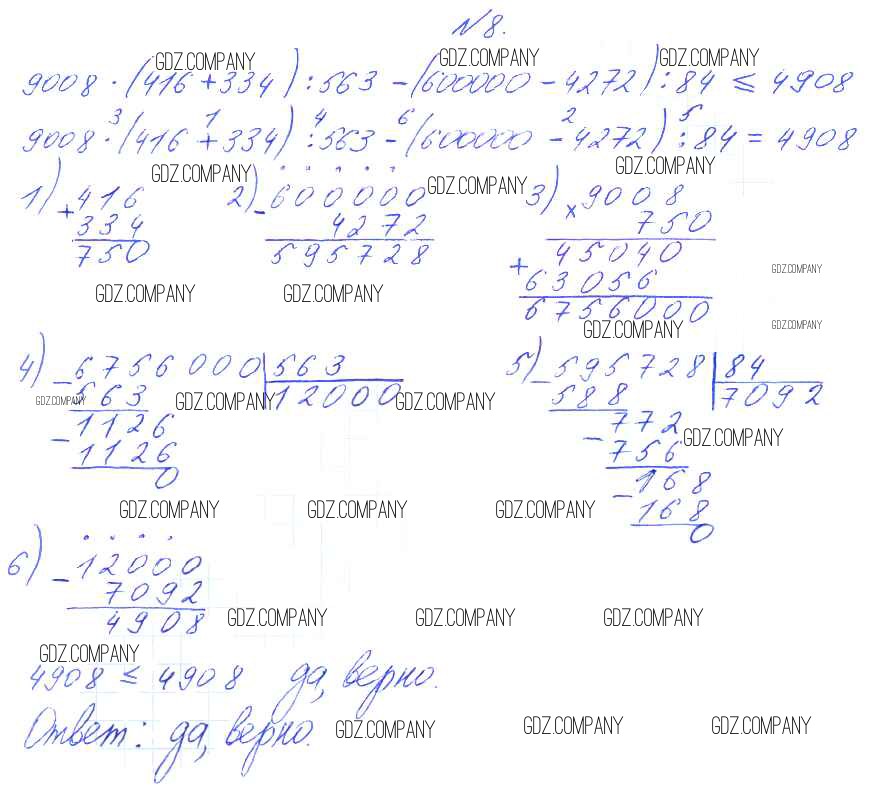 №8.
GDZ.COMPANY GDZ.COMPANY GDZ.COMPANY
9008 · (416 + 334) : 563 – (600000 – 4272) : 84 ≤ 4908
3 1 4 6 2 5
9008 · (416 + 334) : 563 – (600000 – 4272) : 84 = 4908
GDZ.COMPANY GDZ.COMPANY GDZ.COMPANY
1) + 416 2) – 600000 3) × 9008
334 4272 750
750 595728 45040
+ 63056
6756000
GDZ.COMPANY GDZ.COMPANY GDZ.COMPANY
GDZ.COMPANY GDZ.COMPANY
4) – 6756000 | 563 5) – 595728 | 84
563 12000 588 7092
GDZ.COMPANY GDZ.COMPANY GDZ.COMPANY
– 1126 – 772
1126 756
GDZ.COMPANY
0 – 168
168
0
GDZ.COMPANY GDZ.COMPANY GDZ.COMPANY
6) – 12000
7092
4908
GDZ.COMPANY GDZ.COMPANY GDZ.COMPANY
GDZ.COMPANY
4908 ≤ 4908 да, верно.
Ответ: да, верно.
GDZ.COMPANY GDZ.COMPANY GDZ.COMPANY